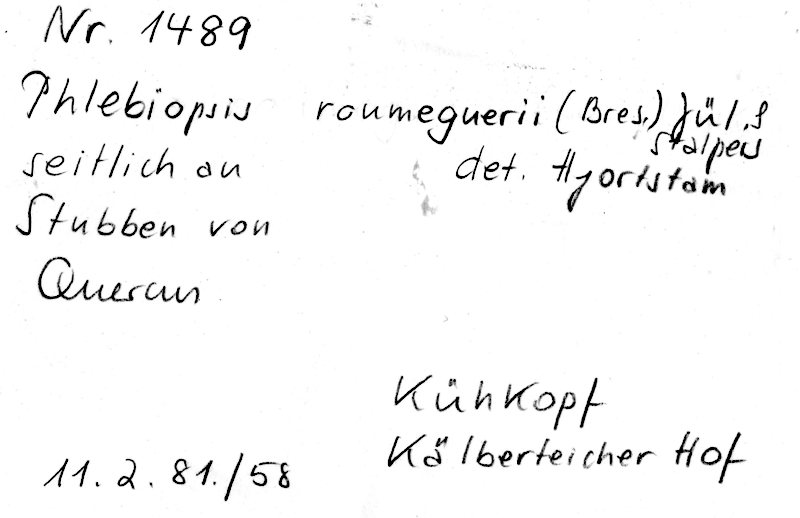 Nr. 1489
Phlebiopsis roumeguerii (Bres.) Jül. &
Stalpers
seitlich an det. Hjortstam
Stubben von
Quercus
Kühkopf
Kälberteicher Hof
11. 2. 81./58